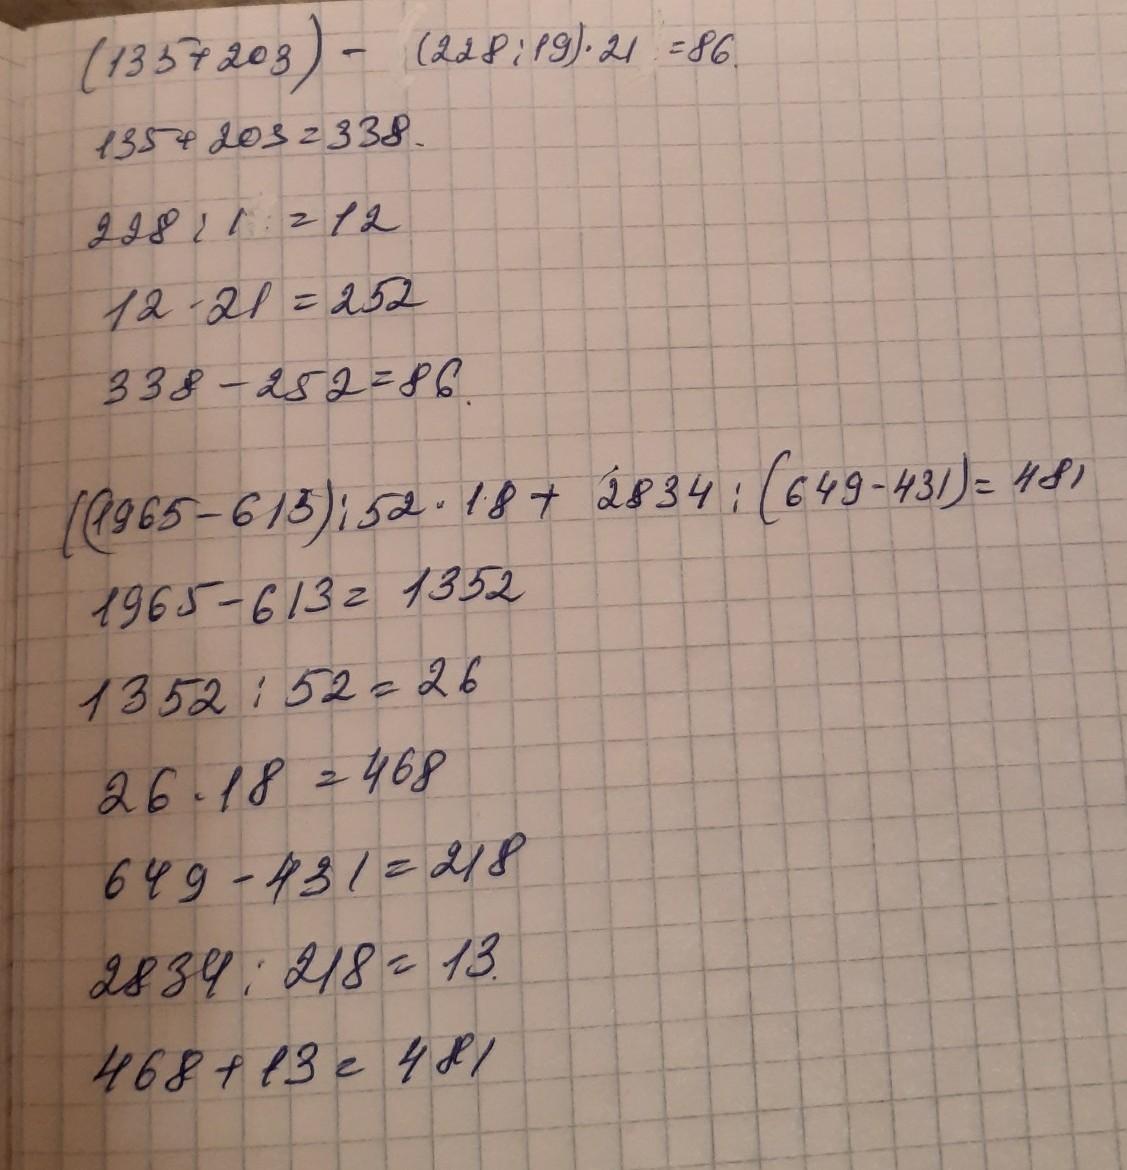 (135+203) - (228:19)·21 =86.
135+203=338.
228:1 =12
12·21=252
338-252=86.
((1965-613):52·18+ 2834:(649-431)=481
1965-613= 1352
1352:52=26
26·18=468
649-431=218
2834:218= 13.
468+13= 481